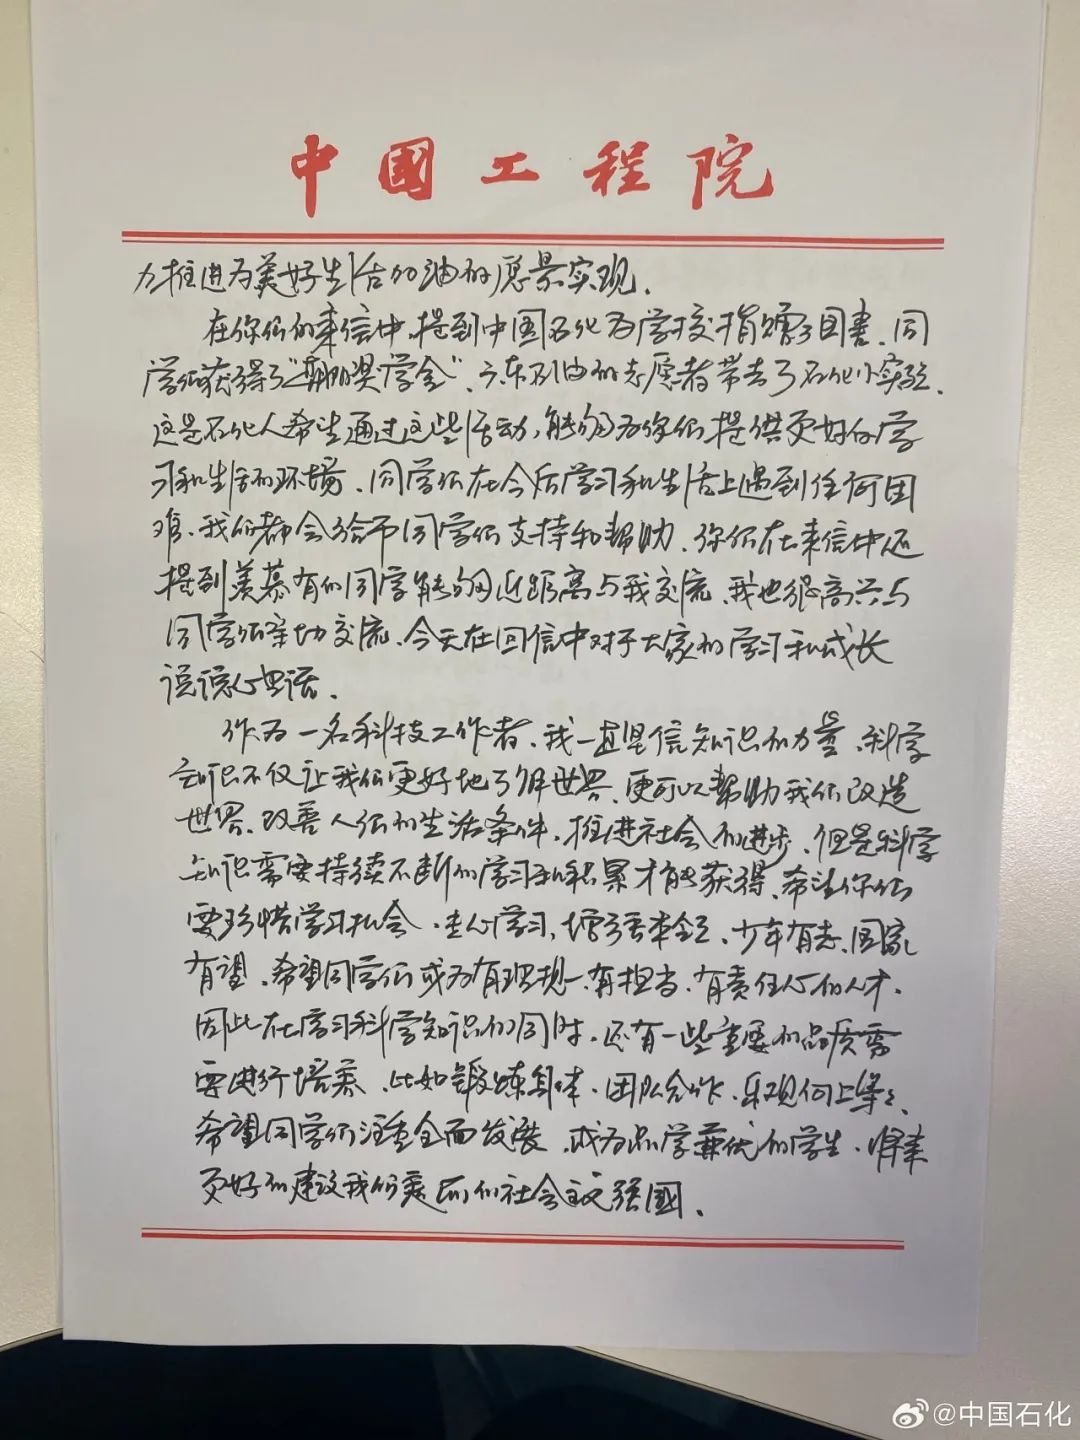 中国工程院
力推进为美好生活加油的愿景实现。
在你们的来信中,提到中国石化为学校捐赠了图书、同
学们获得了“朝阳奖学金”、广东石油的志愿者带去了石化小实验。
这是石化人希望通过这些活动,能够为你们提供更好的学
习和生活的环境。同学们在今后学习和生活上遇到任何困
难、我们都会给予同学们支持和帮助。你们在来信中还
提到羡慕有的同学能够近距离与我交流,我也很高兴与
同学们亲切交流,今天在回信中对于大家的学习和成长
说说心里话。
作为一名科技工作者、我一直坚信知识的力量,科学
知识不仅让我们更好地了解世界、更可以帮助我们改造
世界、改善人们的生活条件,推进社会的进步。但是科学
知识需要持续不断的学习和积累才能获得、希望你们
要珍惜学习机会、主心学习,增强本领、少年有志、国家
有望。希望同学们成为有理想、有担当、有责任心的人才。
因此在学习科学知识的同时,还有一些重要的品质需
要进行培养。比如锻炼身体、团队合作、乐观向上等。
希望同学们注重全面发展,成为品学兼优的学生,将来
更好的建设我们美丽的社会主义强国。
@中国石化